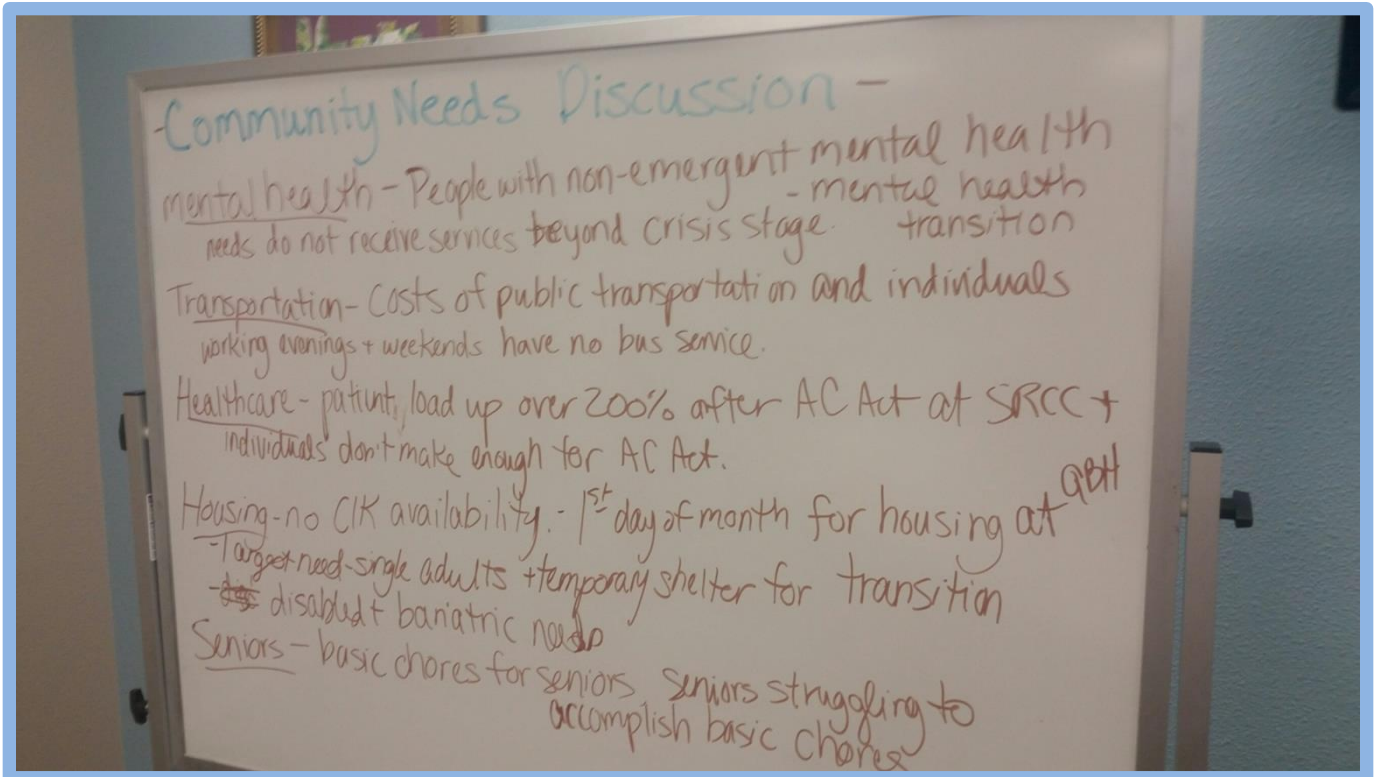 -Community Needs Discussion -
mental health - People with non-emergent mental health
- mental health
needs do not receive services beyond crisis stage. transition
Transportation - Costs of public transportation and individuals
working evenings + weekends have no bus service.
Healthcare - patient load up over 200% after AC Act at SRCC +
individuals don't make enough for AC Act.
Housing - no CIK availability. - 1st day of month for housing at GBH
- Target need - single adults + temporary shelter for transition
- disabled + bariatric needs
Seniors - basic chores for seniors seniors struggling to
accomplish basic chores